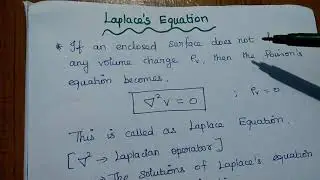 Laplace's Equation
* If an enclosed surface does not
any volume charge ρv, then the Poisson's
equation becomes.
∇²V = 0 ; ρv = 0
This is called as Laplace Equation.
[∇² → Laplacian operator]
→ The solutions of Laplace's equation